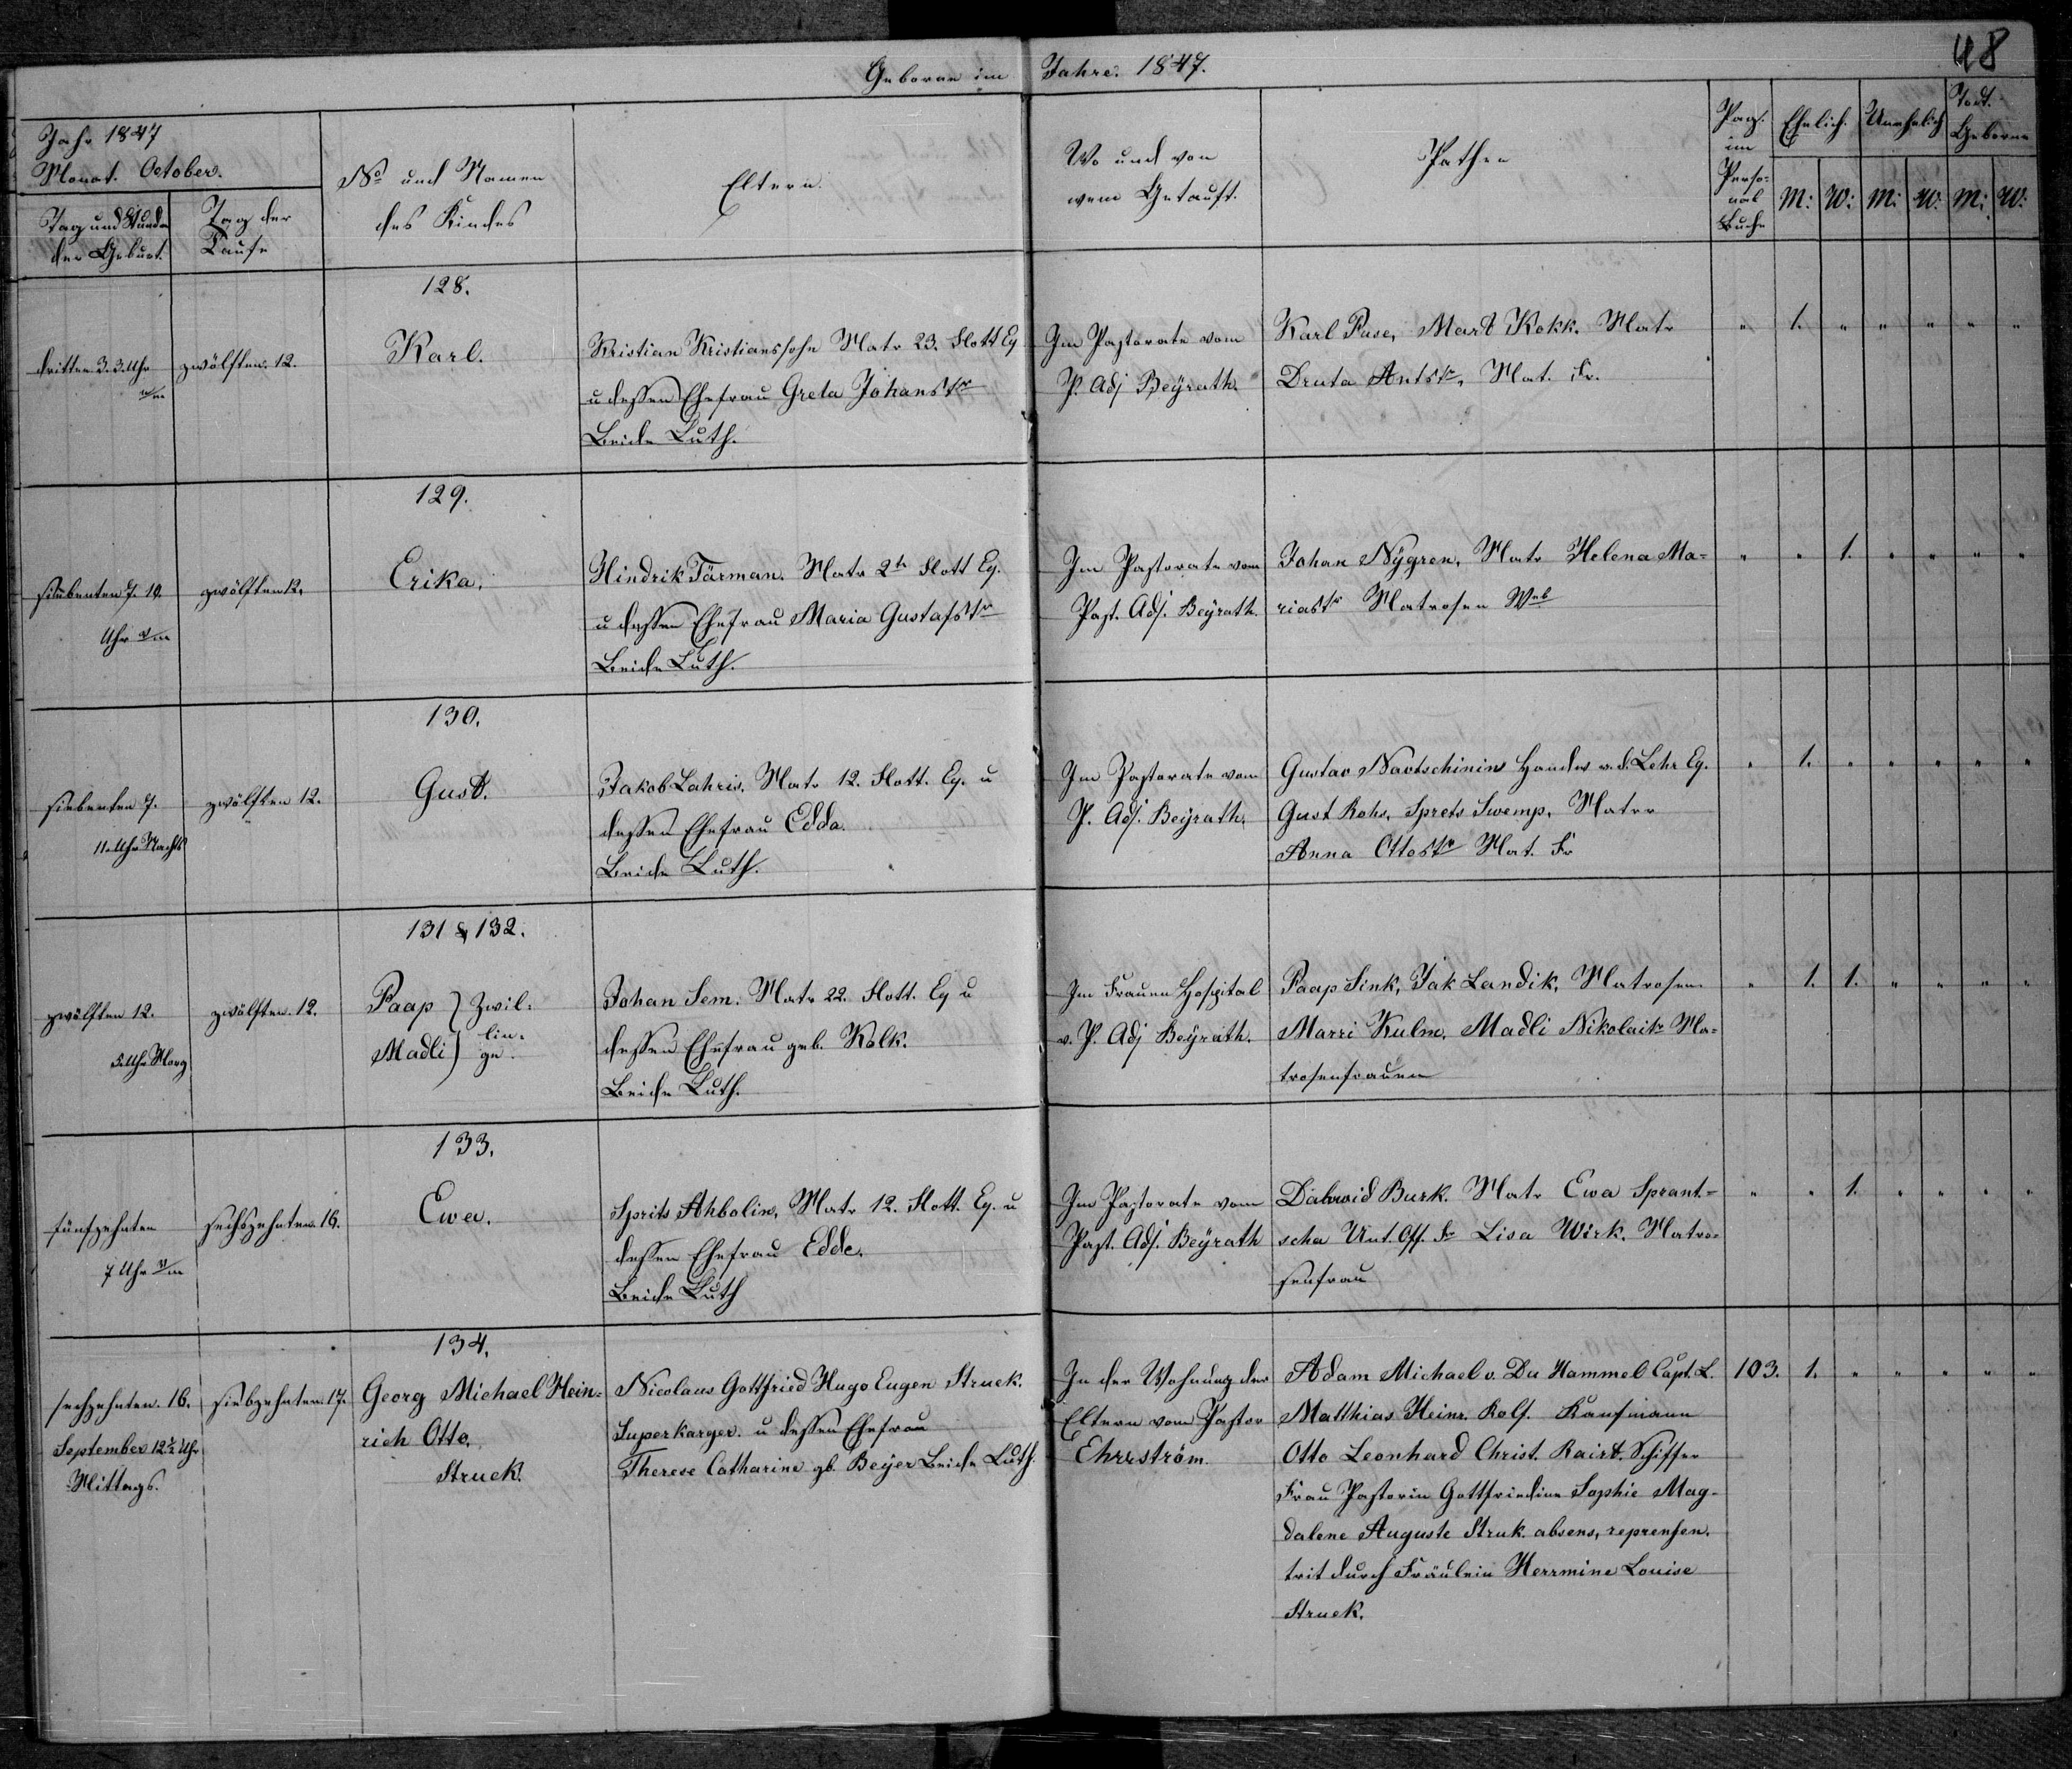 48
Geboren im Jahre. 1847.
Jahr 1847
Monat. October.
Tag und Stunde
der Geburt.
Tag der
Taufe
No und Namen
des Kindes
Eltern.
Wo und von
wem Getauft.
Pathen
Pag.
im
Perso=
nal
Buche
Ehelich.
Unehelich
Todt.
Geborene
M: W: M: W: M: W:
128.
dritten 3. 3. Uhr
zwölften. 12.
Karl.
Kristian Kristianssohn Matr 23. Flott Eq
u dessen Ehefrau Greta Johanstr
Beide Luth.
Im Pastorate vom
P. Adj Beÿrath.
Karl Pase, Mart Kokk. Matr
Druta Antstr, Mat. Fr.
" 1. " " " " "
129.
siebenten 7. 10.
Uhr v/m
zwölften 12.
Erika.
Hindrik Färman. Matr 2tr Flott Eq.
u dessen Ehefrau Maria Gustafstr
Beide Luth.
Im Pastorate vom
Past. Adj. Beÿrath.
Johan Nÿgren, Matr Helena Ma=
riastr Matrosen Weib
" " 1. " " " "
130.
siebenten 7.
11. Uhr Nachts
zwölften 12.
Gust.
Jakob Lahris, Matr 12. Flott. Eq. u
dessen Ehefrau Edda.
Beide Luth.
Im Pastorate vom
P. Adj. Beÿrath.
Gustav Navtschinins Handw v. d. Lehr Eq.
Gust Rohs, Sprets Swemp, Matr
Anna Ottostr Mat. Fr
" 1. " " " " "
131 & 132.
zwölften 12.
5. Uhr Morg
zwölften. 12.
Paap } Zwil=
Madli } lin=
ge.
Johan Sem. Matr 22. Flott. Eq u
dessen Ehefrau geb. Kolk.
Beide Luth.
Im Frauen Hospital
v. P. Adj Beÿrath.
Paap Sink, Jak Landik, Matrosen.
Marri Kulm, Madli Nikolaitr Ma=
trosenfrauen
" 1. 1. " " " "
133.
fünfzehnten
7 Uhr v/m
sechszehnten. 16.
Ewa.
Sprits Ahbolin, Matr 12. Flott. Eq. u
dessen Ehefrau Edde.
Beide Luth
Im Pastorate vom
Past. Adj. Beÿrath
Dabwid Burk. Matr Ewa Sprant=
scha Unt. Off. Fr Lisa Wirk. Matro=
senfrau
" " 1. " " " "
134.
sechzehnten. 16.
September 12½ Uhr
Mittags.
siebzehnten. 17.
Georg Michael Hein=
rich Otto.
Struck.
Nicolaus Gottfried Hugo Eugen Struck.
Superkarger. u dessen Ehefrau
Therese Catharine gb. Beÿer Beide Luth.
In der Wohnung der
Eltern vom Pastor
Ehrström.
Adam Michael v. Du Hammel Capt. L.
Matthias Heinr. Rolf. Kaufmann
Otto Leonhard Christ. Rairt. Schiffer
Frau Pastorin Gottfriedine Sophie Mag=
dalene Auguste Struk. absens, reprensen.
trit durch Fräulein Herrmine Louise
Struck.
103. 1. " " " " "